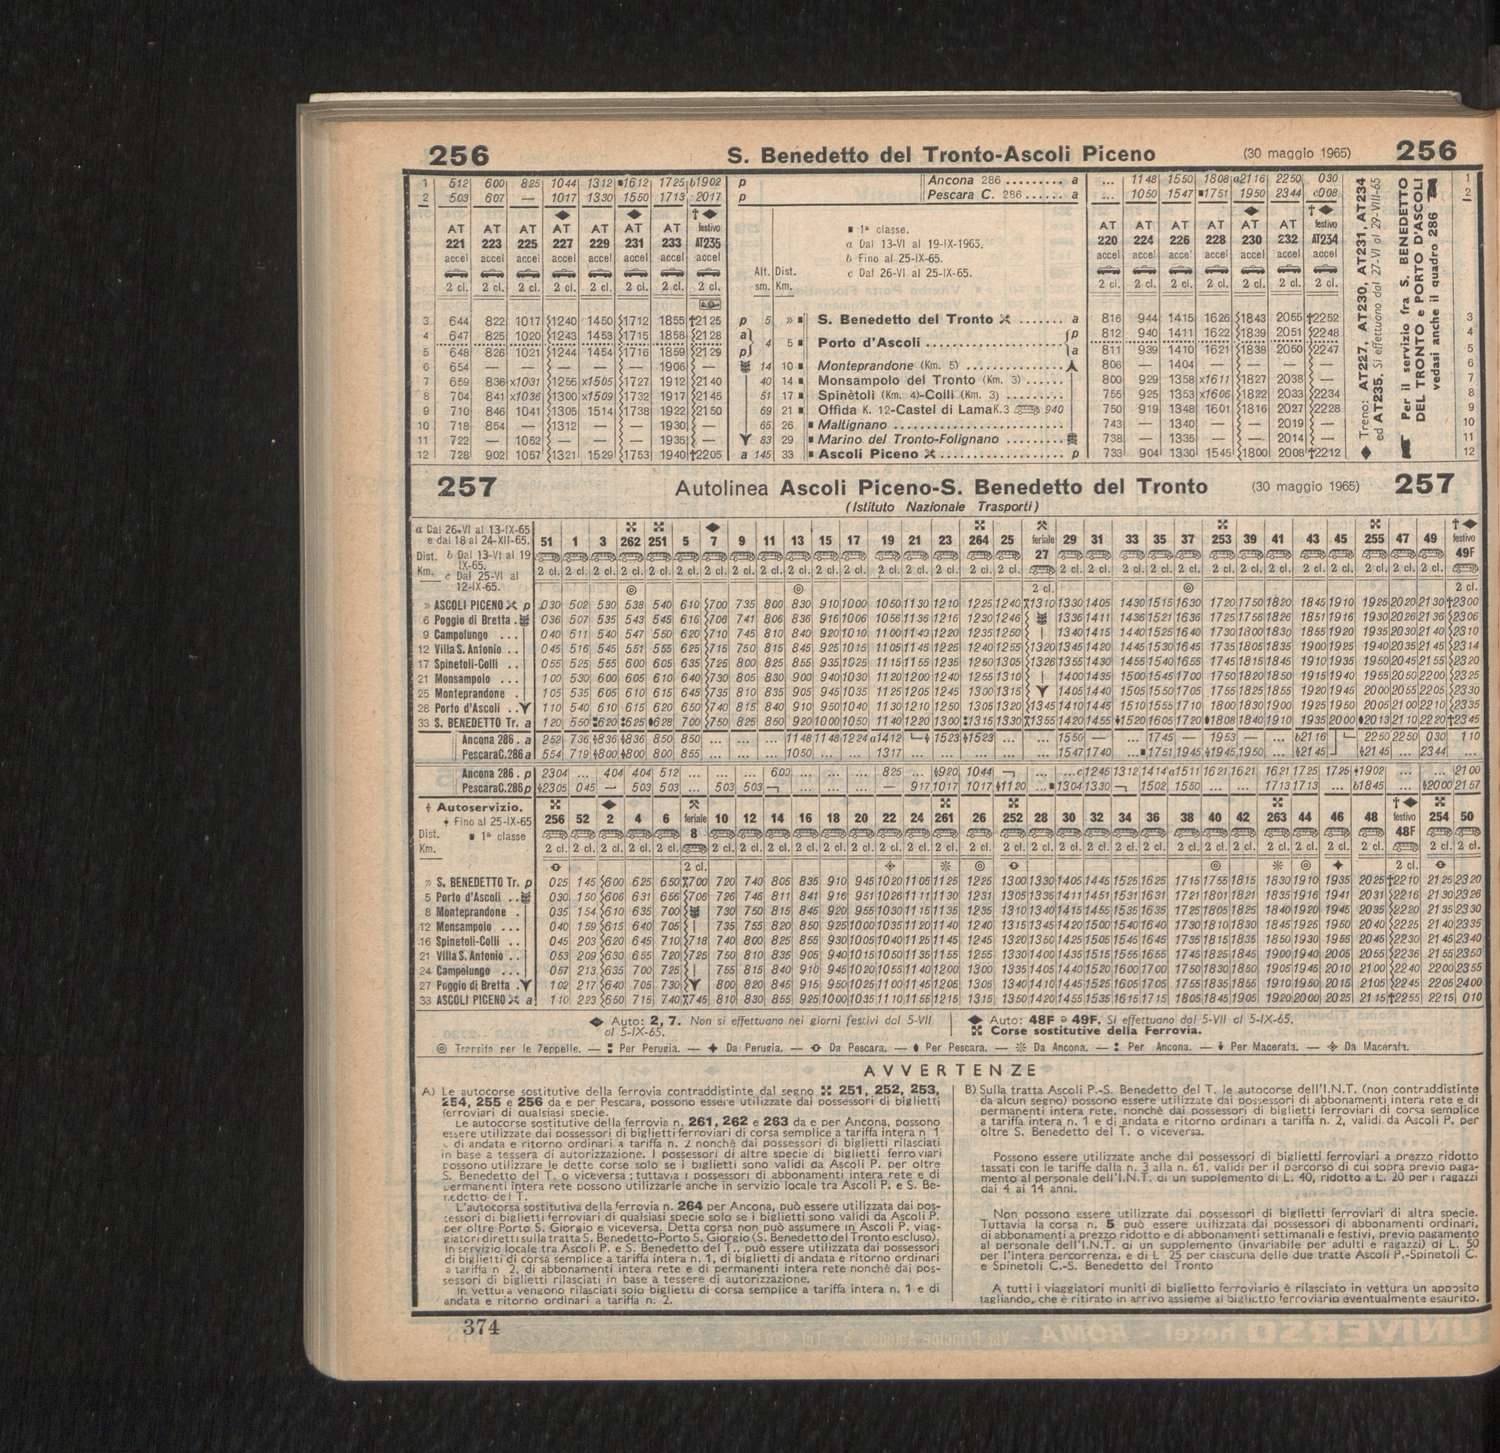 256 S. Benedetto del Tronto-Ascoli Piceno (30 maggio 1965) 256
1 512 600 825 1044 1312 ■1612 1725 b1902 p Ancona 286 ......... a ... 1148 1550 1808 a2116 2250 030 1
2 503 607 — 1017 1330 1550 1713 2017 p Pescara C. 286 ...... a ... 1050 1547 ■1751 1950 2344 c008 2
† ◆ festivo
AT AT AT AT AT AT AT ■ 1ª classe. AT AT AT AT AT AT festivo
221 223 225 227 229 231 233 AT235 a Dal 13-VI al 19-IX-1965. 220 224 226 228 230 232 AT234
accel accel accel accel accel accel accel b Fino al 25-IX-65. accel accel accel accel accel accel
c Dal 26-VI al 25-IX-65.
2 cl. 2 cl. 2 cl. 2 cl. 2 cl. 2 cl. 2 cl. 2 cl. Alt. sm. Dist. Km. 2 cl. 2 cl. 2 cl. 2 cl. 2 cl. 2 cl. 2 cl.
3 644 822 1017 1240 1450 1712 1855 †2125 p 5 » ■ S. Benedetto del Tronto ....... a 816 944 1415 1626 1843 2055 †2252 3
4 647 825 1020 1243 1453 1715 1858 2128 a 4 5 ■ Porto d'Ascoli ..................... p 812 940 1411 1622 1839 2051 2248 4
5 648 826 1021 1244 1454 1716 1859 2129 p a 811 939 1410 1621 1838 2050 2247 5
6 654 — — — — — 1906 — 14 10 ■ Monteprandone (Km. 5) ............... 806 — 1404 — — — — 6
7 659 836 x1031 1256 x1505 1727 1912 2140 40 14 ■ Monsampolo del Tronto (Km. 3) ...... 800 929 1358 x1611 1827 2038 — 7
8 704 841 x1036 1300 x1509 1732 1917 2145 51 17 ■ Spinètoli (Km. 4)-Colli (Km. 3) ......... 755 925 1353 x1606 1822 2033 2234 8
9 710 846 1041 1305 1514 1738 1922 2150 69 21 ■ Offida K. 12-Castel di Lama K.3 940 750 919 1348 1601 1816 2027 2228 9
10 718 854 — 1312 — — 1930 — 65 26 ■ Maltignano ........................ 743 — 1340 — — 2019 — 10
11 722 — 1052 — — — 1935 — 83 29 ■ Marino del Tronto-Folignano ......... 738 — 1335 — — 2014 — 11
12 728 902 1057 1321 1529 1753 1940 †2205 a 145 33 ■ Ascoli Piceno .................. p 733 904 1330 1545 1800 2008 †2212 12
◆ Treno: AT227, AT230, AT231, AT234
ed AT235. Si effettuano dal 27-VI al 29-VIII-65
Per il servizio fra S. BENEDETTO
DEL TRONTO e PORTO D'ASCOLI
vedasi anche il quadro 286
257 Autolinea Ascoli Piceno-S. Benedetto del Tronto (30 maggio 1965) 257
(Istituto Nazionale Trasporti)
a Dal 26-VI al 13-IX-65
e dal 18 al 24-XII-65.
b Dal 13-VI al 19
IX-65.
c Dal 25-VI al
12-IX-65.
Dist. Km. 51 1 3 262 251 5 7 9 11 13 15 17 19 21 23 264 25 feriale 27 29 31 33 35 37 253 39 41 43 45 255 47 49 festivo 49F
» ASCOLI PICENO p 030 502 530 538 540 610 700 735 800 830 910 1000 1050 1130 1210 1225 1240 1310 1330 1405 1430 1515 1630 1720 1750 1820 1845 1910 1925 2020 2130 †2300
6 Poggio di Bretta . 036 507 535 543 545 616 706 741 806 836 916 1006 1056 1136 1216 1230 1246 1336 1411 1436 1521 1636 1725 1756 1826 1851 1916 1930 2026 2136 2306
9 Campolungo ... 040 511 540 547 550 620 710 745 810 840 920 1010 1100 1140 1220 1235 1250 1340 1415 1440 1525 1640 1730 1800 1830 1855 1920 1935 2030 2140 2310
12 Villa S. Antonio .. 045 516 545 551 555 625 715 750 815 845 925 1015 1105 1145 1225 1240 1255 1320 1345 1420 1445 1530 1645 1735 1805 1835 1900 1925 1940 2035 2145 2314
17 Spinetoli-Colli .. 055 525 555 600 605 635 725 800 825 855 935 1025 1115 1155 1235 1250 1305 1326 1355 1430 1455 1540 1655 1745 1815 1845 1910 1935 1950 2045 2155 2320
21 Monsampolo ... 100 530 600 605 610 640 730 805 830 900 940 1030 1120 1200 1240 1255 1310 1400 1435 1500 1545 1700 1750 1820 1850 1915 1940 1955 2050 2200 2325
25 Monteprandone . 105 535 605 610 615 645 735 810 835 905 945 1035 1125 1205 1245 1300 1315 1405 1440 1505 1550 1705 1755 1825 1855 1920 1945 2000 2055 2205 2330
28 Porto d'Ascoli .. 110 540 610 615 620 650 740 815 840 910 950 1040 1130 1210 1250 1305 1320 1345 1410 1445 1510 1555 1710 1800 1830 1900 1925 1950 2005 2100 2210 2335
33 S. BENEDETTO Tr. a 120 550 620 625 628 700 750 825 850 920 1000 1050 1140 1220 1300 1315 1330 1355 1420 1455 1520 1605 1720 1808 1840 1910 1935 2000 2013 2110 2220 †2345
Ancona 286 . a 252 736 836 836 850 850 ... ... ... 1148 1148 1224 a1412 1523 1523 ... ... 1550 — ... 1745 — 1953 — ... b2116 2250 2250 030 110
Pescara C. 286 a 554 719 800 800 800 855 ... ... ... 1050 ... ... 1317 ... ... ... 1547 1740 ... ■1751 1945 1945 1950 ... 2145 2145 ... 2344 ...
Ancona 286 . p 2304 ... 404 404 512 ... ... ... 600 ... ... ... 825 ... 920 1044 ... c1245 1312 1414 a1511 1621 1621 1621 1725 1725 1902 ... ... 2100
Pescara C. 286 p 2305 045 — 503 503 ... 503 503 ... ... ... ... 917 1017 1017 1120 ... ■1304 1330 1502 1550 ... 1713 1713 ... b1845 ... 2000 2157
Autoservizio.
Fino al 25-IX-65
■ 1ª classe
Dist. Km. 256 52 2 4 6 feriale 8 10 12 14 16 18 20 22 24 261 26 252 28 30 32 34 36 38 40 42 263 44 46 48 festivo 48F 254 50
» S. BENEDETTO Tr. p 025 145 600 625 650 700 720 740 805 835 910 945 1020 1105 1125 1225 1300 1330 1405 1445 1525 1625 1715 1755 1815 1830 1910 1935 2025 †2210 2125 2320
5 Porto d'Ascoli .. 030 150 606 631 656 705 726 746 811 841 916 951 1026 1111 1130 1231 1305 1336 1411 1451 1531 1631 1721 1801 1821 1835 1916 1941 2031 2216 2130 2326
8 Monteprandone . 035 154 610 635 700 730 750 815 845 920 955 1030 1115 1135 1235 1310 1340 1415 1455 1535 1635 1725 1805 1825 1840 1920 1945 2035 2220 2135 2330
12 Monsampolo ... 040 159 615 640 705 735 755 820 850 925 1000 1035 1120 1140 1240 1315 1345 1420 1500 1540 1640 1730 1810 1830 1845 1925 1950 2040 2225 2140 2335
16 Spinetoli-Colli .. 045 203 620 645 710 718 740 800 825 855 930 1005 1040 1125 1145 1245 1320 1350 1425 1505 1545 1645 1735 1815 1835 1850 1930 1955 2045 2230 2145 2340
21 Villa S. Antonio .. 053 209 630 655 720 725 750 810 835 905 940 1015 1050 1135 1155 1255 1330 1400 1435 1515 1555 1655 1745 1825 1845 1900 1940 2005 2055 2236 2155 2350
24 Campolungo ... 057 213 635 700 725 755 815 840 910 945 1020 1055 1140 1200 1300 1335 1405 1440 1520 1600 1700 1750 1830 1850 1905 1945 2010 2100 2240 2200 2355
27 Poggio di Bretta . 102 217 640 705 730 800 820 845 915 950 1025 1100 1145 1205 1305 1340 1410 1445 1525 1605 1705 1755 1835 1855 1910 1950 2015 2105 2245 2205 2400
33 ASCOLI PICENO a 110 223 650 715 740 745 810 830 855 925 1000 1035 1110 1155 1215 1315 1350 1420 1455 1535 1615 1715 1805 1845 1905 1920 2000 2025 2115 †2255 2215 010
◆ Auto: 2, 7. Non si effettuano nei giorni festivi dal 5-VII
al 5-IX-65.
◆ Auto: 48F e 49F. Si effettuano dal 5-VII al 5-IX-65.
Corse sostitutive della Ferrovia.
◎ Transito per le Zeppelle. — Per Perugia. — Da Perugia. — Da Pescara. — Per Pescara. — Da Ancona. — Per Ancona. — Per Macerata. — Da Macerata.
AVVERTENZE
A) Le autocorse sostitutive della ferrovia contraddistinte dal segno 251, 252, 253,
254, 255 e 256 da e per Pescara, possono essere utilizzate dai possessori di biglietti
ferroviari di qualsiasi specie.
Le autocorse sostitutive della ferrovia n. 261, 262 e 263 da e per Ancona, possono
essere utilizzate dai possessori di biglietti ferroviari di corsa semplice a tariffa intera n. 1
di andata e ritorno ordinari a tariffa n. 2 nonchè dai possessori di biglietti rilasciati
in base a tessera di autorizzazione. I possessori di altre specie di biglietti ferroviari
possono utilizzare le dette corse solo se i biglietti sono validi da Ascoli P. per oltre
S. Benedetto del T. o viceversa; tuttavia i possessori di abbonamenti intera rete e di
permanenti intera rete possono utilizzarle anche in servizio locale tra Ascoli P. e S. Be-
nedetto del T.
L'autocorsa sostitutiva della ferrovia n. 264 per Ancona, può essere utilizzata dai pos-
sessori di biglietti ferroviari di qualsiasi specie solo se i biglietti sono validi da Ascoli P.
per oltre Porto S. Giorgio e viceversa. Detta corsa non può assumere in Ascoli P. viag-
giatori diretti sulla tratta S. Benedetto-Porto S. Giorgio (S. Benedetto del Tronto escluso).
In servizio locale tra Ascoli P. e S. Benedetto del T., può essere utilizzata dai possessori
di biglietti di corsa semplice a tariffa intera n. 1, di biglietti di andata e ritorno ordinari
a tariffa n. 2, di abbonamenti intera rete e di permanenti intera rete nonchè dai pos-
sessori di biglietti rilasciati in base a tessere di autorizzazione.
In vettura vengono rilasciati solo biglietti di corsa semplice a tariffa intera n. 1 e di
andata e ritorno ordinari a tariffa n. 2.
B) Sulla tratta Ascoli P.-S. Benedetto del T. le autocorse dell'I.N.T. (non contraddistinte
da alcun segno) possono essere utilizzate dai possessori di abbonamenti intera rete e di
permanenti intera rete, nonchè dai possessori di biglietti ferroviari di corsa semplice
a tariffa intera n. 1 e di andata e ritorno ordinari a tariffa n. 2, validi da Ascoli P. per
oltre S. Benedetto del T. o viceversa.
Possono essere utilizzate anche dai possessori di biglietti ferroviari a prezzo ridotto
tassati con le tariffe dalla n. 3 alla n. 61, validi per il percorso di cui sopra previo paga-
mento al personale dell'I.N.T. di un supplemento di L. 40, ridotto a L. 20 per i ragazzi
dai 4 ai 14 anni.
Non possono essere utilizzate dai possessori di biglietti ferroviari di altra specie.
Tuttavia la corsa n. 5 può essere utilizzata dai possessori di abbonamenti ordinari,
di abbonamenti a prezzo ridotto e di abbonamenti settimanali e festivi, previo pagamento
al personale dell'I.N.T. di un supplemento (invariabile per adulti e ragazzi) di L. 50
per l'intera percorrenza, e di L. 25 per ciascuna delle due tratte Ascoli P.-Spinetoli C.
e Spinetoli C.-S. Benedetto del Tronto
A tutti i viaggiatori muniti di biglietto ferroviario è rilasciato in vettura un apposito
tagliando, che è ritirato in arrivo assieme al biglietto ferroviario eventualmente esaurito.
374